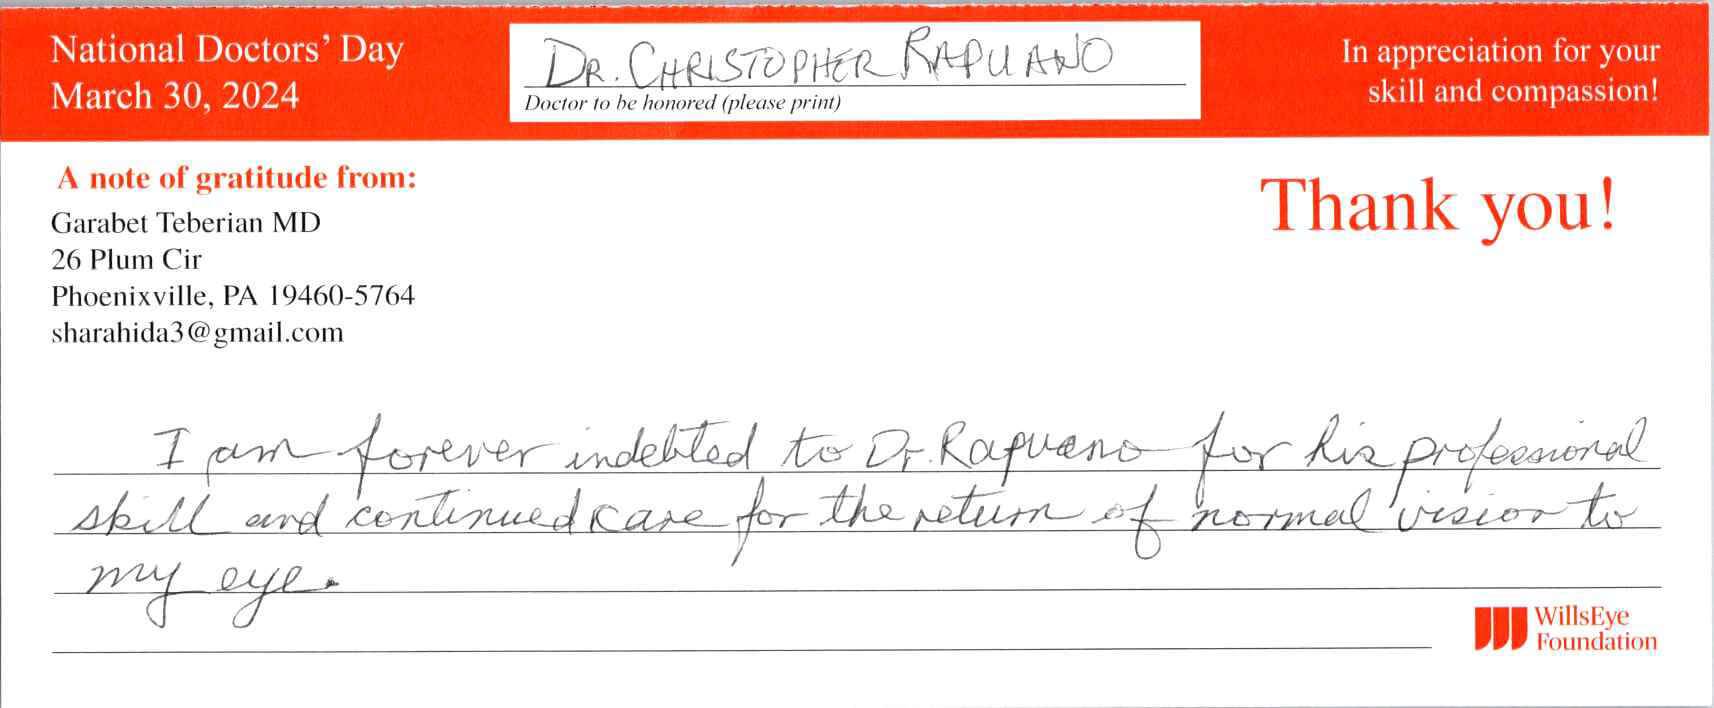 National Doctors' Day
March 30, 2024
DR. CHRISTOPHER RAPUANO
Doctor to be honored (please print)
In appreciation for your
skill and compassion!
A note of gratitude from:
Garabet Teberian MD
26 Plum Cir
Phoenixville, PA 19460-5764
sharahida3@gmail.com
Thank you!
I am forever indebted to Dr. Rapuano for his professional
skill and continued care for the return of normal vision to
my eye.
WillsEye
Foundation